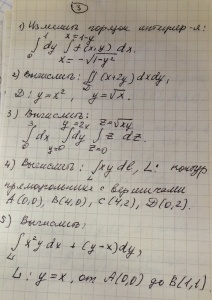 ③
1) Изменить порядок интегр-я:
∫₀¹ dy ∫_{x=-√(1-y²)}^{x=1-y} f(x,y) dx.
2) Вычислить: ∬_D (x+2y) dxdy,
D: y=x², y=√x.
3) Вычислить:
∫₀³ dx ∫_{y=0}^{y=2x} dy ∫_{z=0}^{z=√xy} z dz.
4) Вычислить: ∫_L xy dl, L: контур
прямоугольника с вершинами
A(0,0), B(4,0), C(4,2), D(0,2).
5) Вычислить
∫_L x²y dx + (y-x)dy,
L: y=x, от A(0,0) до B(1,1)